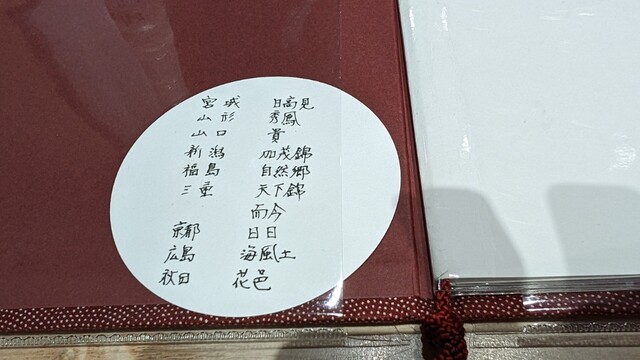 宮城 日高見
山形 秀鳳
山口 貴
新潟 加茂錦
福島 自然郷
三重 天下錦
而今
京都 日日
広島 海風土
秋田 花邑